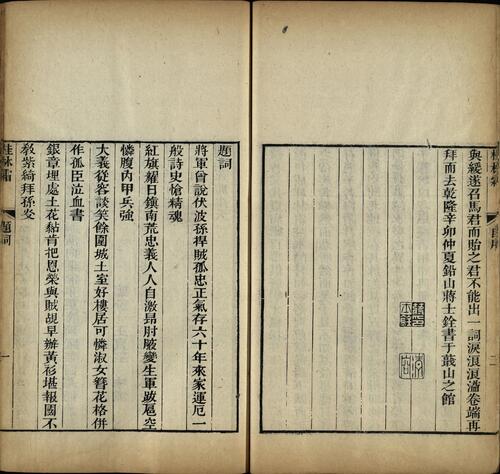 與緩遂召馬君而貽之君不能出一詞淚浪浪溢卷端再
拜而去乾隆辛卯仲夏鉛山蔣士銓書于蕺山之館
自序
二
題詞
將軍曾說伏波孫捍賊孤忠正氣存六十年來家運厄一
般詩史愴精魂
紅旗耀日鎮南荒忠義人人自激昂肘腋變生軍跋扈空
憐腹內甲兵強
大義從容談笑餘圍城土室好樓居可憐淑女簪花格併
作孤臣泣血書
銀章埋處土花黏肯把恩榮與賊覘早辦黃衫堪報國不
教紫綺拜孫炎
桂林霜
題詞
一